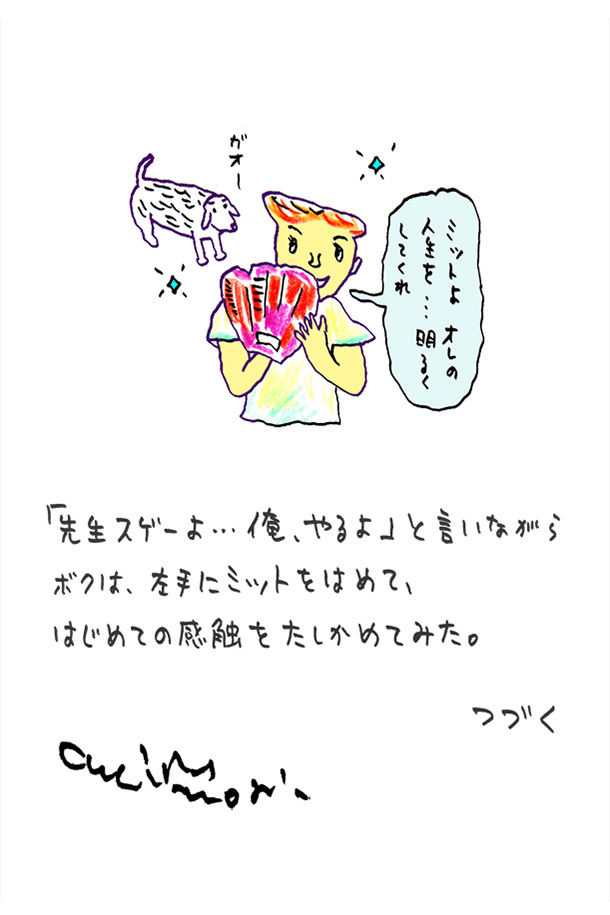 ガオー
ミットよ オレの
人生を…明るく
してくれ
「先生スゲーよ…俺、やるよ」と言いながら
ボクは、左手にミットをはめて、
はじめての感触をたしかめてみた。
つづく